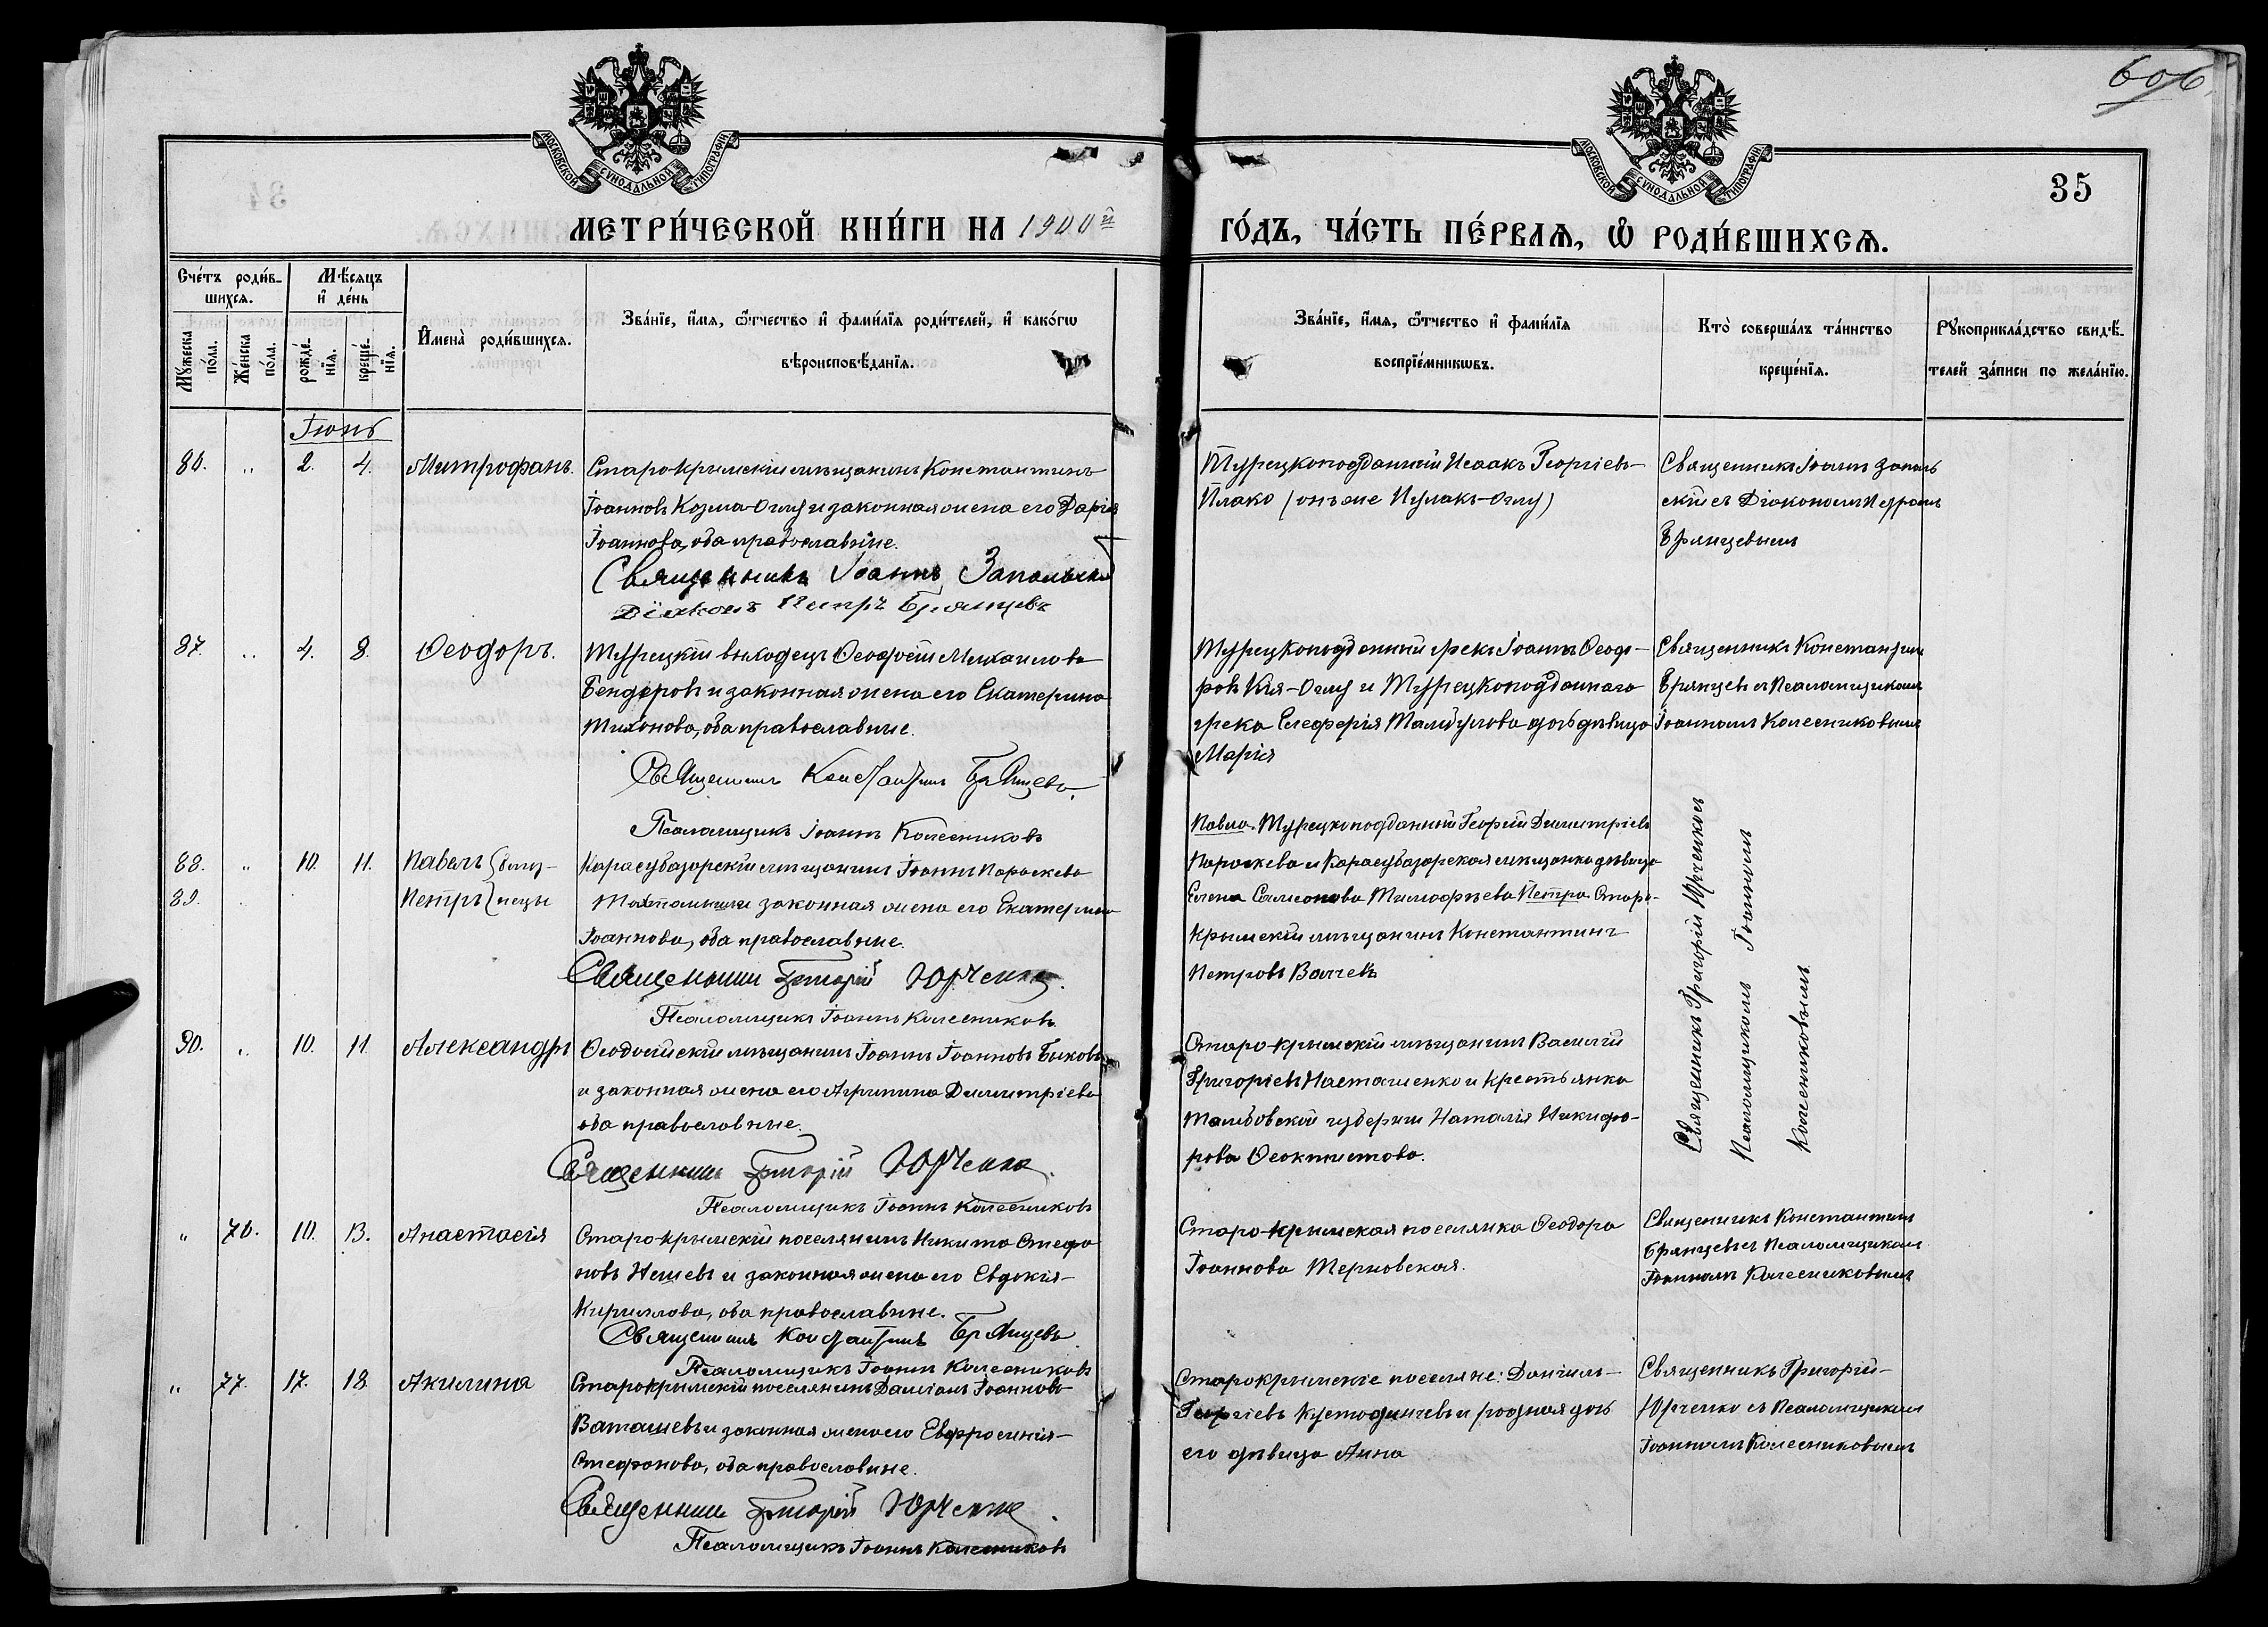 606
МОСКОВСКОЙ СѴНОДАЛЬНОЙ ТИПОГРАФІИ
МОСКОВСКОЙ СѴНОДАЛЬНОЙ ТИПОГРАФІИ
35
МЕТРИ́ЧЕСКОЙ КНИ́ГИ НА 1900й
ГО́ДЪ, ЧА́СТЬ ПЕ́РВАѦ, Ѡ҆ РОДИ́ВШИХСѦ.
Сче́тъ роди́в-
шихсѧ.
Мѣ́сѧцъ
и҆ де́нь
Мꙋ́жеска по́ла.
Же́нска по́ла.
рожде́-нїѧ.
креще́-нїѧ.
И҆мена̀ роди́вшихсѧ.
Зва́нїе, и҆́мѧ, ѻ҆́тчество и҆ фами́лїѧ роди́телей, и҆ како́гѡ
вѣроисповѣ́данїѧ.
Зва́нїе, и҆́мѧ, ѻ҆́тчество и҆ фами́лїѧ
воспрїе́мникѡвъ.
Кто̀ соверша́лъ та́инство
креще́нїѧ.
Рꙋкоприкла́дство свидѣ́-
телей за́писи по жела́нїю.
Іюнь
86. „ 2. 4. Митрофанъ.
Старо-крымскій мѣщанинъ Константинъ
Іоанновъ Козма-Оглу и законная жена его Дарія
Іоаннова, оба православные.
Священникъ Іоаннъ Запольскій
Діаконъ Петръ Брянцевъ
Турецкоподданный Исаакъ Георгіевъ
Плако (онъ же Пулакъ-Оглу)
Священникъ Іоаннъ Заполь
скій съ Діакономъ Петромъ
Брянцевымъ
87. „ 4. 8. Ѳеодоръ.
Турецкій выходецъ Ѳеофей Михаиловъ
Бендеровъ и законная жена его Екатерина
Тихонова, оба православные.
Священникъ Константинъ Брянцевъ.
Псаломщикъ Іоаннъ Колесниковъ
Турецкоподданный грекъ Іоаннъ Ѳеодо-
ровъ Кія-Оглу и Турецкоподданнаго
грека Елеферія Тамбулова дочь дѣвица
Марія
Священникъ Константинъ
Брянцевъ съ Псаломщикомъ
Іоанномъ Колесниковымъ
88. „ 10. 11. Павелъ } близ-
89. Петръ } нецы
Карасубазарскій мѣщанинъ Іоаннъ Параскева
и законная жена его Екатерина
Іоаннова, оба православные.
Священникъ Григорій Юрченко.
Псаломщикъ Іоаннъ Колесниковъ
Павла. Турецкоподданный Георгій Димитріевъ
Параскева и Карасубазарская мѣщанка дѣвица
Елена Симеонова Тимофѣева Петра Старо-
крымскій мѣщанинъ Константинъ
Петровъ Валчевъ
Священникъ Григорій Юрченко съ
Псаломщикомъ Іоанномъ
Колесниковымъ
90. „ 10. 11. Александръ
Ѳеодосійскій мѣщанинъ Іоаннъ Іоанновъ Быковъ
и законная жена его Агрипина Димитріева
оба православные.
Священникъ Григорій Юрченко.
Псаломщикъ Іоаннъ Колесниковъ
Старо-крымскій мѣщанинъ Василій
Григоріевъ Насташенко и крестьянка
Тамбовской губерніи Наталія Никифо-
рова Ѳеоктистова.
„ 76. 10. 13. Анастасія
Старо-крымскій поселянинъ Никита Стефа
новъ Нешевъ и законная жена его Евдокія
Кириллова, оба православные.
Священникъ Константинъ Брянцевъ
Псаломщикъ Іоаннъ Колесниковъ
Старо-крымская поселянка Ѳеодора
Іоаннова Терновская.
Священникъ Константинъ
Брянцевъ съ Псаломщикомъ
Іоанномъ Колесниковымъ
„ 77. 17. 18. Акилина
Старокрымскій поселянинъ Даміанъ Іоанновъ
Ваташевъ и законная жена его Евфросинія
Стефанова, оба православные.
Священникъ Григорій Юрченко.
Псаломщикъ Іоаннъ Колесниковъ
Старокрымскіе поселяне: Даніилъ
Георгіевъ Кустодинчевъ и родная дочь
его дѣвица Анна
Священникъ Григорій
Юрченко съ Псаломщикомъ
Іоанномъ Колесниковымъ